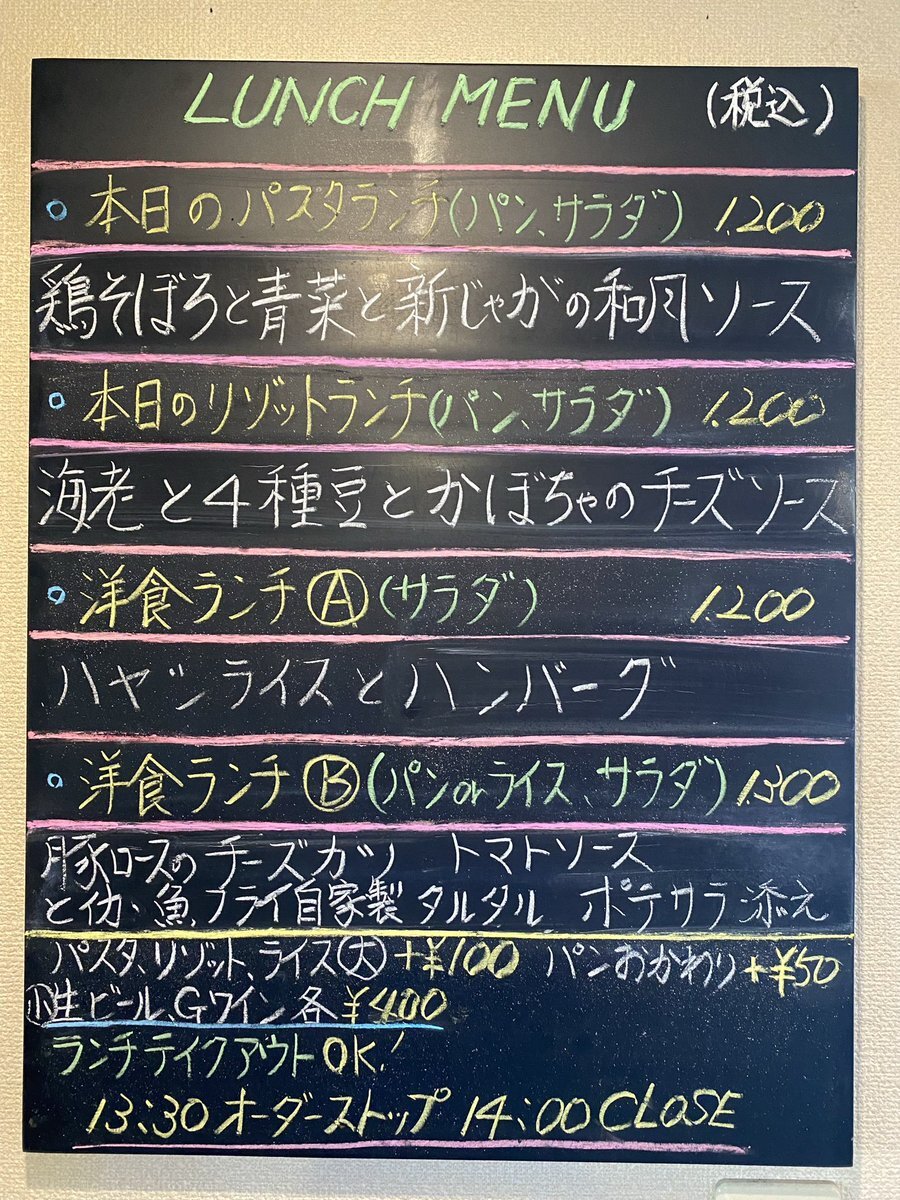 LUNCH MENU (税込)
○ 本日のパスタランチ(パン、サラダ) 1.200
鶏そぼろと青菜と新じゃがの和風ソース
○ 本日のリゾットランチ(パン、サラダ) 1.200
海老と4種豆とかぼちゃのチーズソース
○ 洋食ランチⒶ(サラダ) 1.200
ハヤシライスとハンバーグ
○ 洋食ランチⒷ(パンorライス、サラダ) 1.300
豚ロースのチーズカツ トマトソース
とイカ、魚、フライ自家製タルタル ポテサラ添え
パスタ、リゾット、ライス㊅ +¥100 パンおかわり+¥50
小生ビール、Gワイン各¥400
ランチテイクアウトOK!
13:30オーダーストップ 14:00CLOSE